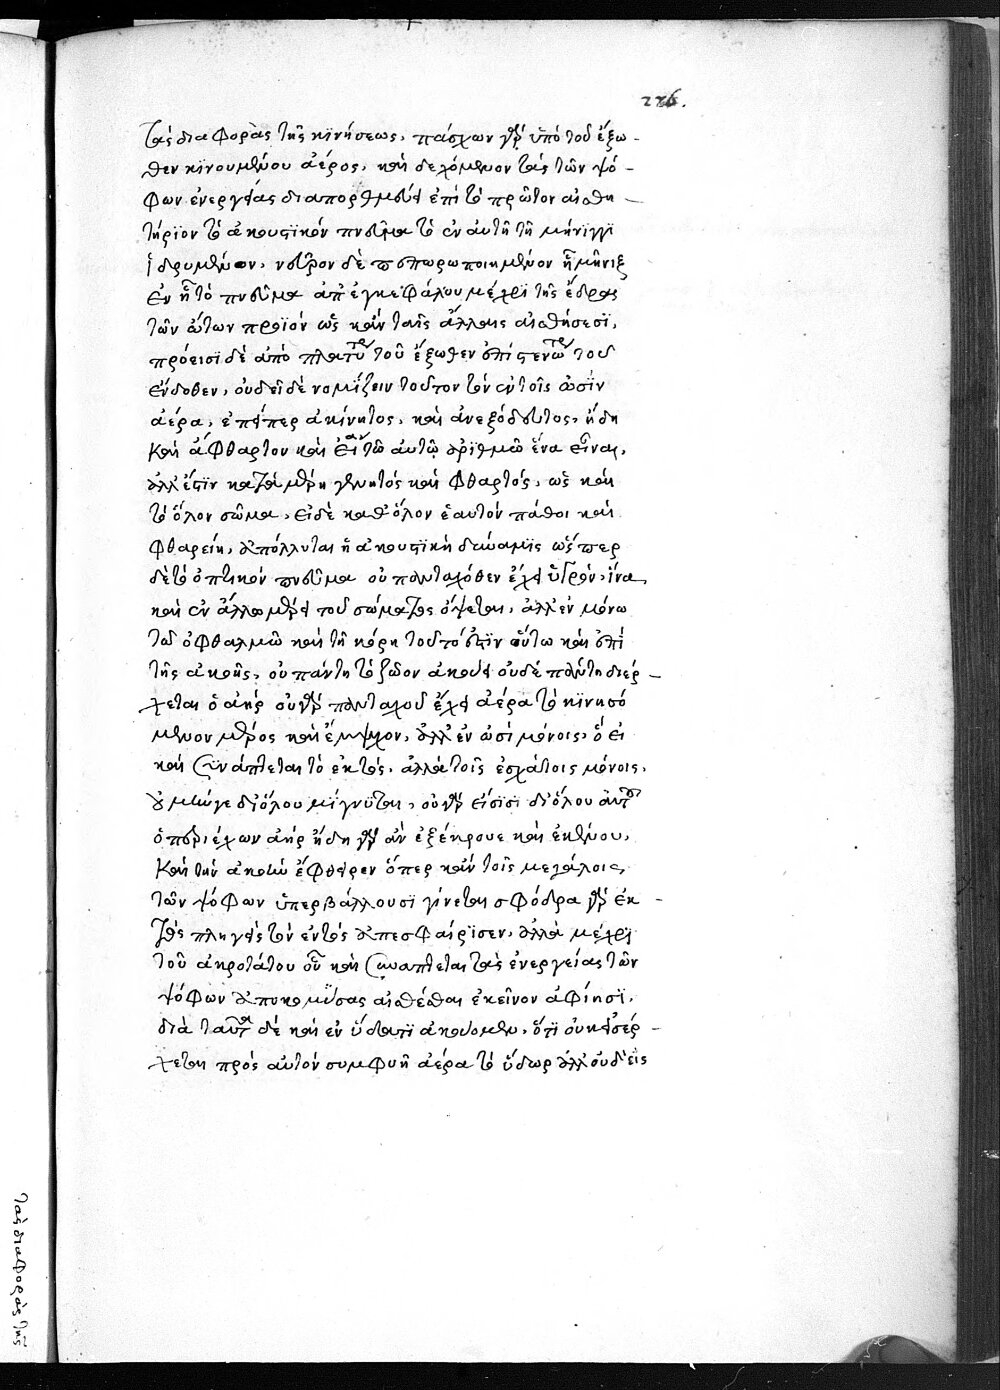 226.
τὰς διαφορὰς τῆς κϊνήσεως, πάσχων γὰρ ὑπὸ τοῦ ἔξω-
θεν κϊνουμένου ἀέρος, καὶ δεχόμενον τὰς τῶν ψό-
φων ἐνεργείας διαπορθμεύει ἐπὶ τὸ πρῶτον αἰσθη-
τήρϊον τὸ ἀκουστϊκὸν πνεῦμα τὸ ἐν αὐτῆ τῆ μήνιγγϊ
ἱδρυμένον, νεῦρον δὲ πεπωρωποιημένον ἡ μῆνιξ
ἐν ἧ τὸ πνεῦμα ἀπ' ἐγκεφάλου μέχρϊ τῆς ἕδρας
τῶν ὤτων προϊὸν ὡς κἀν ταῖς ἄλλαις αἰσθήσεσϊ,
πρόεισϊ δὲ ἀπὸ πλατυτέρου τοῦ ἔξωθεν ἐπὶ στενώτερον τοῦ
ἔνδοθεν, οὐ δεῖ δὲ νομίζειν τοῦτον τὸν ἐν τοῖς ὠσὶν
ἀέρα, ἐπείπερ ἀκίνητος, καὶ ἀνεξόδευτος, ἤδη
καὶ ἄφθαρτον καὶ ἀεὶ τῶ αὐτῶ ἀρϊθμῶ ἕνα εἶναι,
ἀλλ' ἔστϊν κατὰ μέρη γεννητὸς καὶ φθαρτός, ὡς καὶ
τὸ ὅλον σῶμα, εἰ δὲ καθ' ὅλον ἑαυτὸν πάθοι καὶ
φθαρείη, ἀπόλλυται ἡ ἀκουστϊκὴ δύναμϊς ὥσπερ
δὲ τὸ ὀπτικὸν πνεῦμα οὐ πανταχόθεν ἔχει ὑγρὸν, ἵνα
καὶ ἐν ἄλλω μέρει τοῦ σώματος ὄψεται, ἀλλ' ἐν μόνω
τῶ ὀφθαλμῶ καὶ τῆ κόρη τοῦτό ἐστϊν οὕτω καὶ ἐπὶ
τῆς ἀκοῆς, οὐ πάντη τὸ ζῶον ἀκούει οὐδὲ πάντη διέρ-
χεται ὁ ἀὴρ οὐ γὰρ πανταχοῦ ἔχει ἀέρα τὸ κϊνησό
μενον μέρος καὶ ἔμψυχον, ἀλλ' ἐν ὠσὶ μόνοις, ὃ εἰ
καὶ συνάπτεται τὸ ἐκτὸς, ἀλλὰ τοῖς ἐσχάτοις μόνοις,
οὐ μέντοιγε δϊόλου μίγνϋται, οὐ γὰρ εἴσϊσϊ δϊόλου αὐτοῦ
ὁ περιέχων ἀὴρ ἤδη γὰρ ἂν ἐξέκρουε καὶ ἐκενου,
καὶ τὴν ἀκοὴν ἔφθειρεν ὅπερ κἀν τοῖς μεγάλοις
τῶν ψόφων ὑπερβάλλουσϊ γίνεται σφόδρα γὰρ ἐκ-
τὸς πληγεὶς τὸν ἐντὸς ἀπεσφαίρϊσεν, ἀλλὰ μέχρϊ
τοῦ ἀκροτάτου οὗ καὶ συναπτεται τὰς ἐνεργείας τῶν
ψόφων ἀποκομίσας αἰσθέσθαι ἐκεῖνον ἀφίησϊ,
διὰ ταῦτα δὲ καὶ ἐν ὕδατϊ ἀκούομεν, ὅτϊ οὐκ εἰσέρ-
χεται πρὸς αὐτὸν συμφυῆ ἀέρα τὸ ὕδωρ ἀλλ' οὐδ' εἰς
τὰς διαφορὰς τῆς